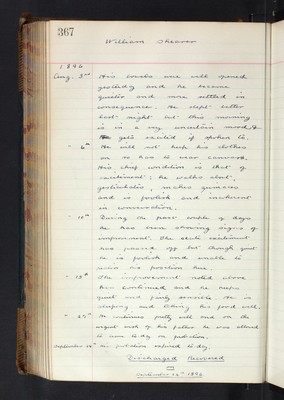 367
William Cheavor
1896
Aug. 3rd His bowels were well opened
yesterday and he became
quieter and more settled in
consequence. He slept better
last night but this morning
is in a very uncertain mood, &
He gets excited if spoken to.
" 6th He will not keep his clothes
on so has to wear canvas.
His chief condition is that of
excitement; he walks about,
gesticulates, makes grimaces
and is foolish and incoherent
in conversation.
" 10th During the past couple of days
he has been showing signs of
improvement. The acute excitement
has passed off but though quiet
he is foolish and unable to
realise his position here.
" 15th The improvement noted above
has continued and he keeps
quiet and fairly sensible. He is
sleeping and taking his food well.
" 29th He continues pretty well and on the
urgent wish of his father he was allowed
to leave to-day on probation.
September 22nd His probation expired to-day.
Discharged Recovered
September 22nd 1896